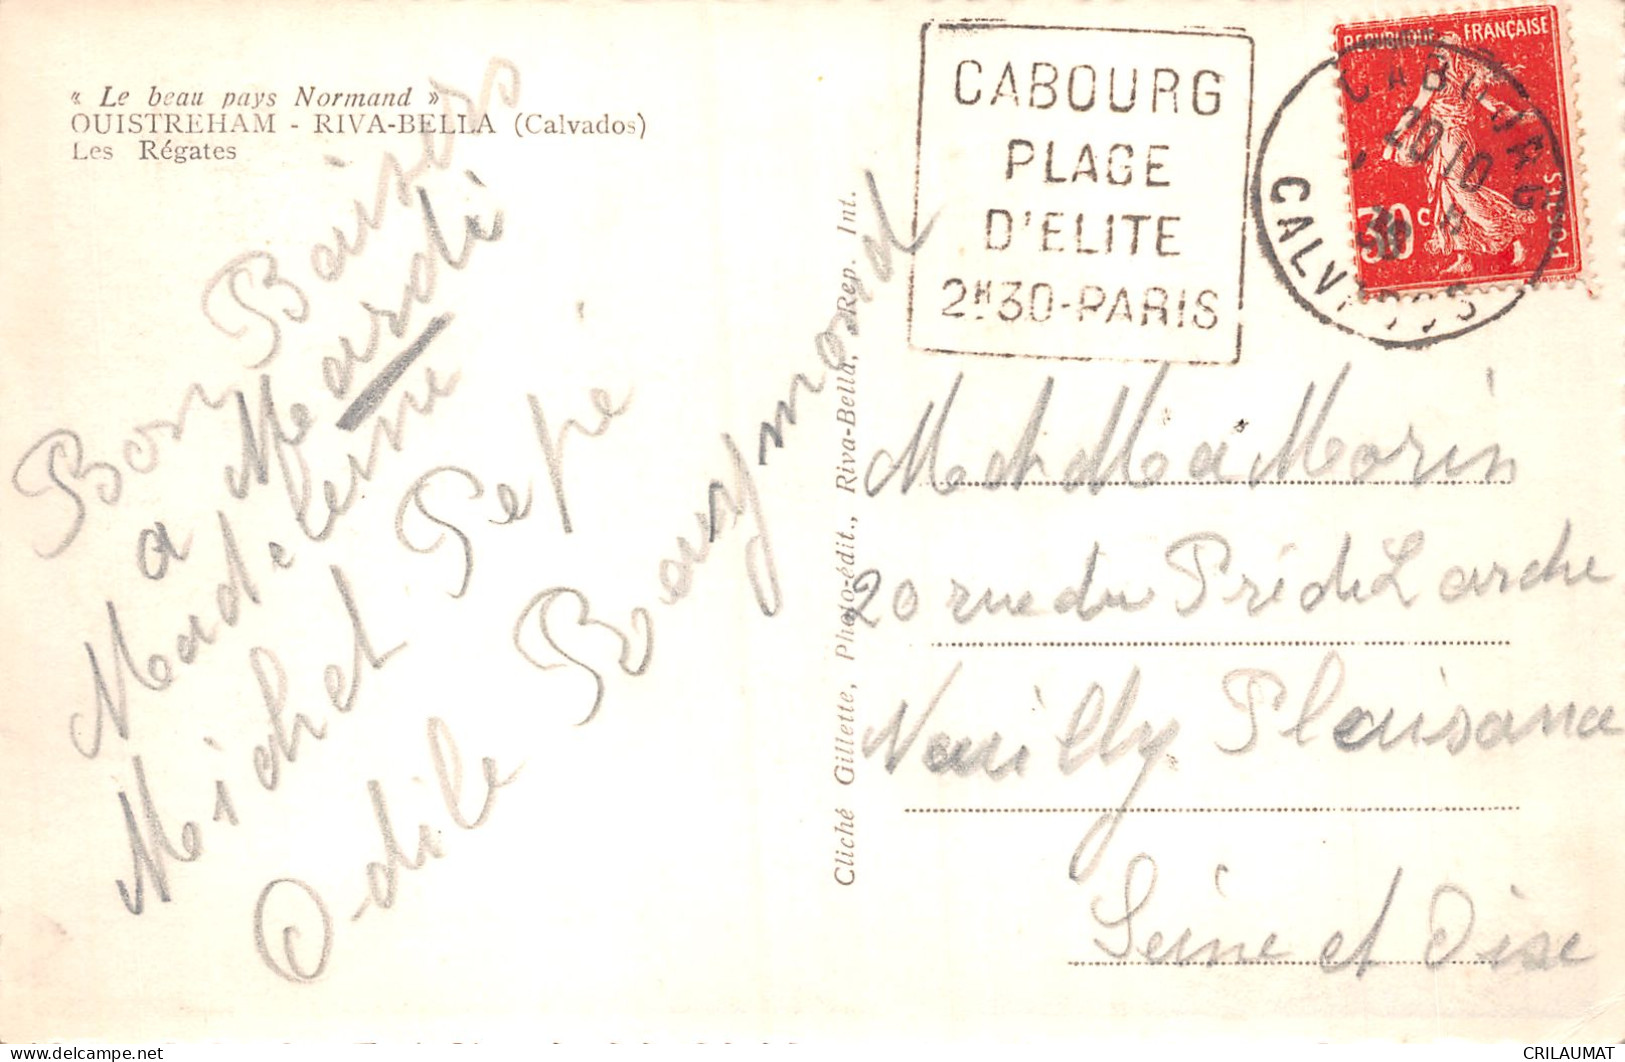 « Le beau pays Normand »
OUISTREHAM - RIVA-BELLA (Calvados)
Les Régates
Bon Baisers
a Mardi
Madeleine
Michel Pepé
Odile Raymond
Cliché Gillette, Photo-édit., Riva-Bella, Rep. Int.
CABOURG
PLAGE
D'ELITE
2H30-PARIS
REPUBLIQUE FRANÇAISE
30c
POSTES
CABOURG
20 10
CALVADOS
M et Me Morin
20 rue du Pré de Larche
Neuilly Plaisance
Seine et Oise
CRILAUMAT